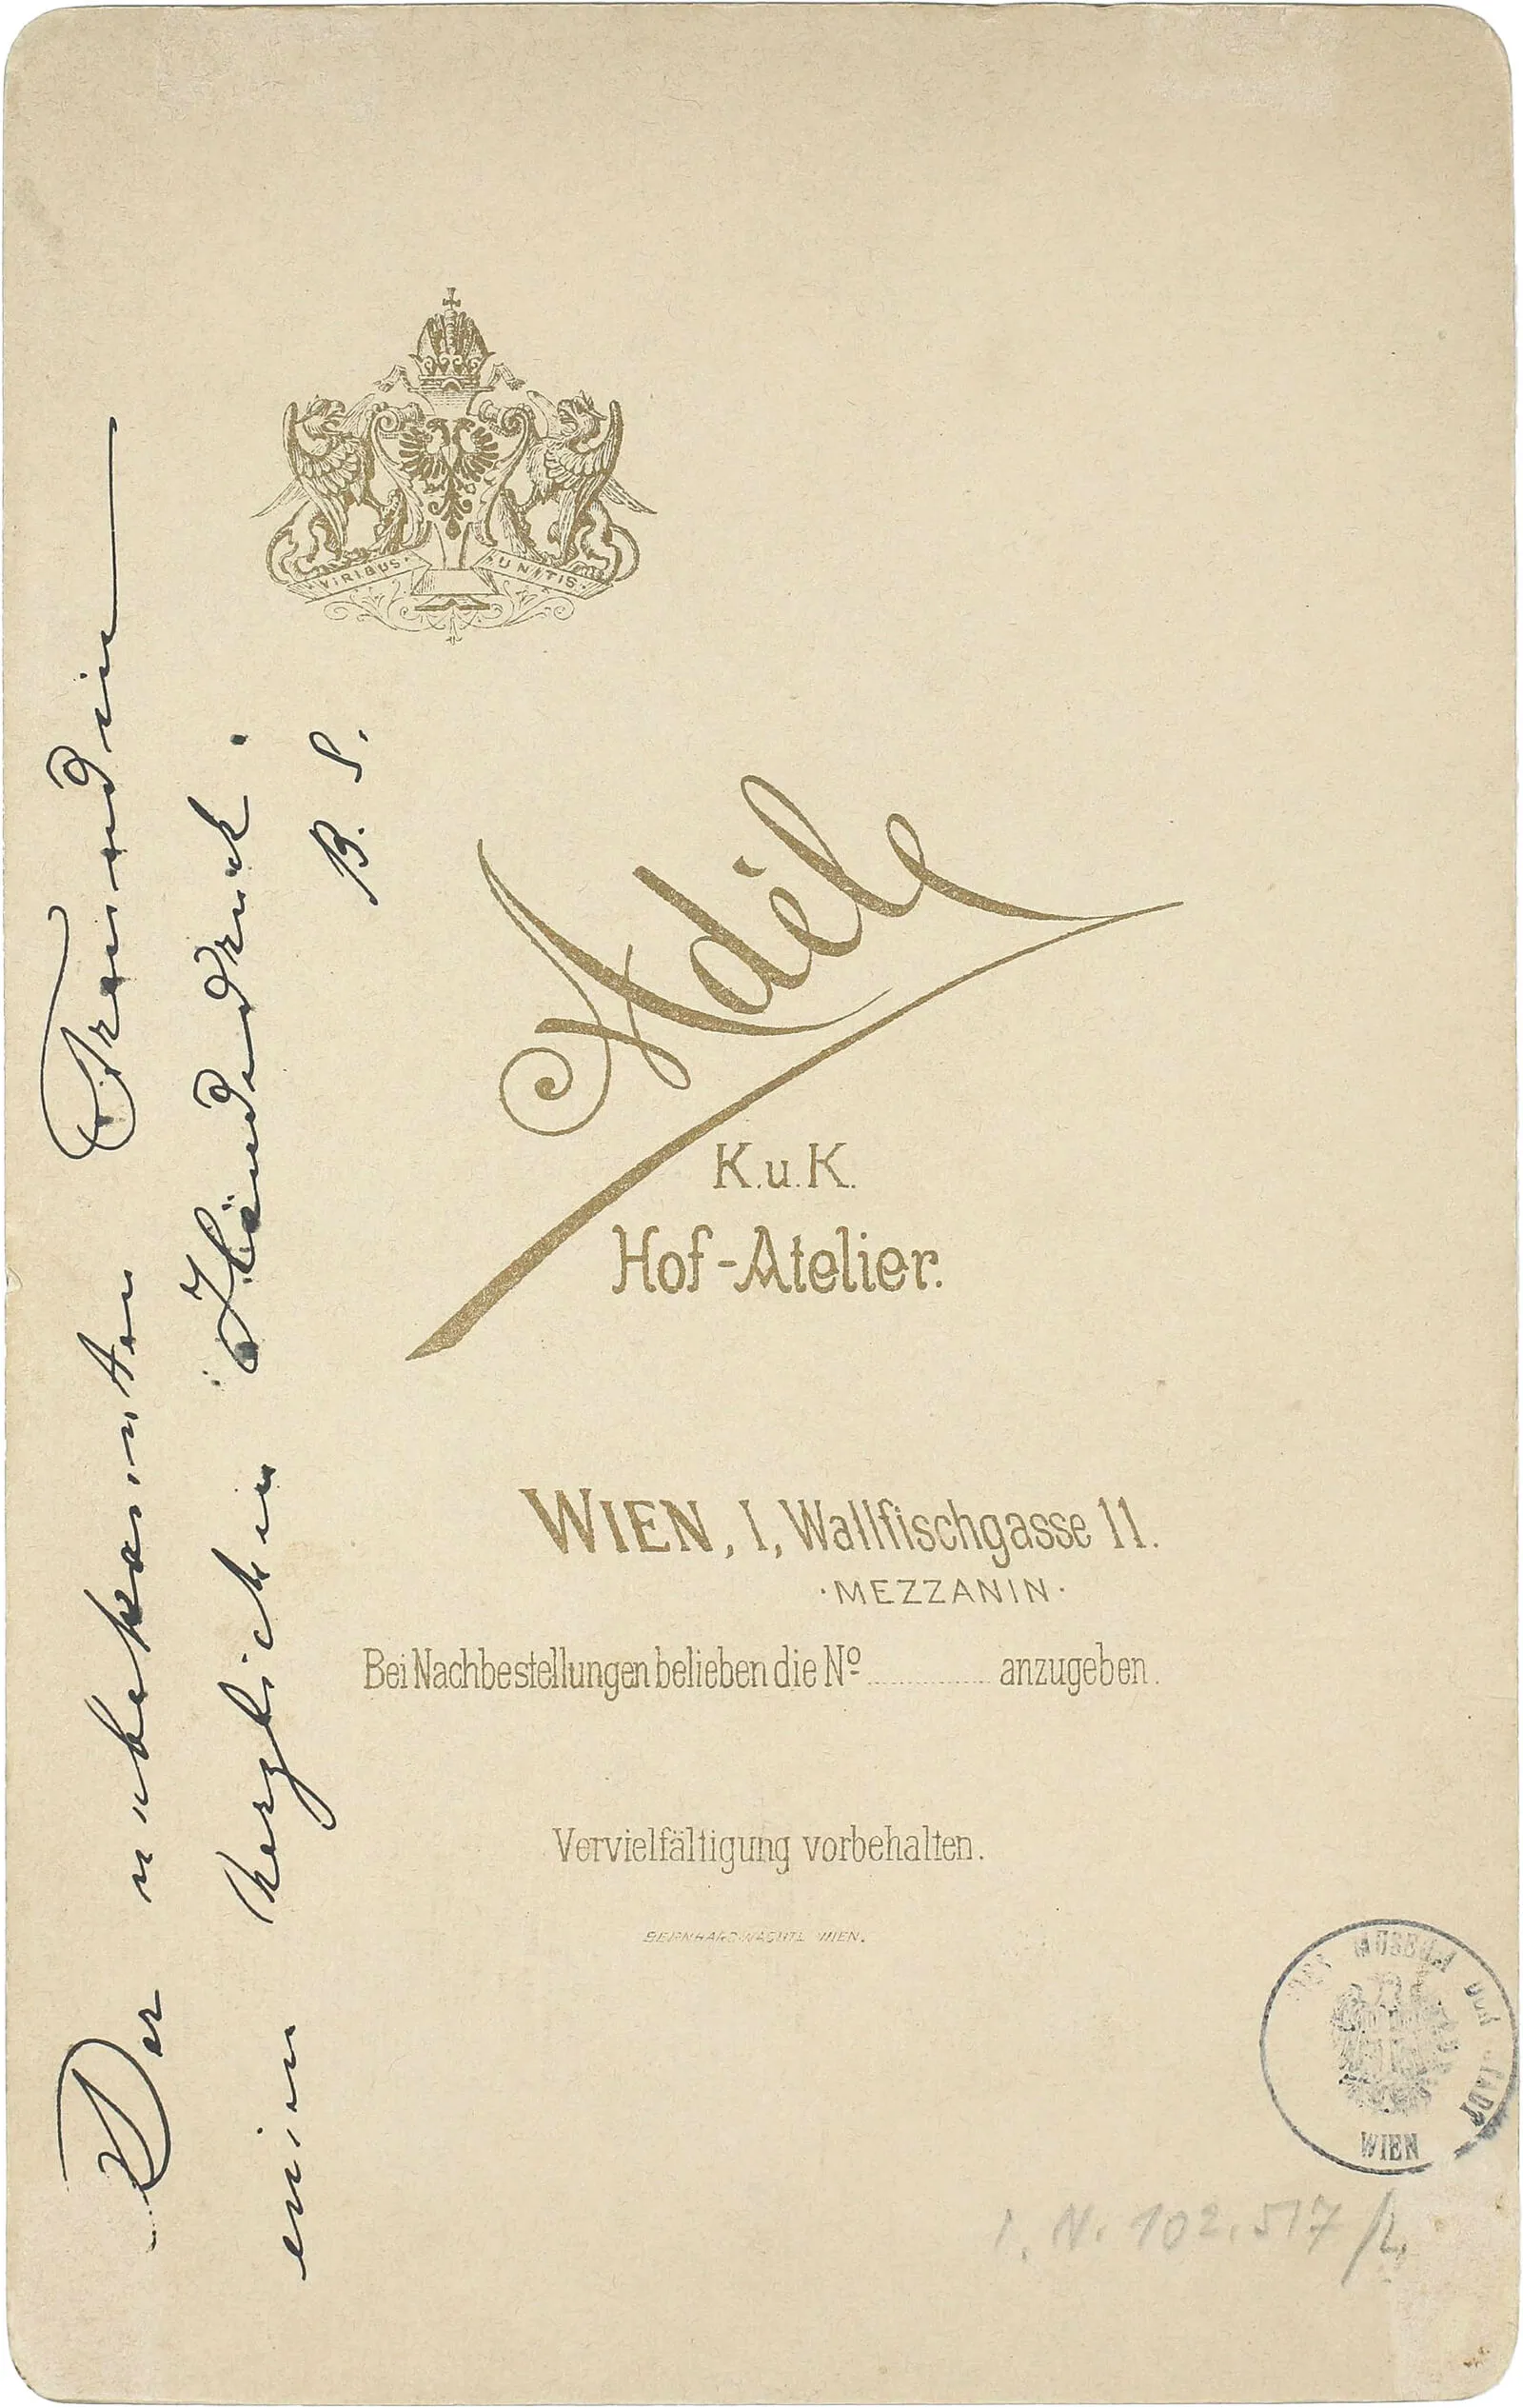 Der unbekannten Freundin
einen herzlichen Händedruck.
B. S.
VIRIBUS UNITIS
Adéle
K. u. K.
Hof-Atelier.
WIEN, I, Wallfischgasse 11.
·MEZZANIN·
Bei Nachbestellungen belieben die Nº ............ anzugeben.
Vervielfältigung vorbehalten.
BERNHARD WACHTL WIEN.
MUSEUM
STADT
WIEN
I. N. 102.517/2